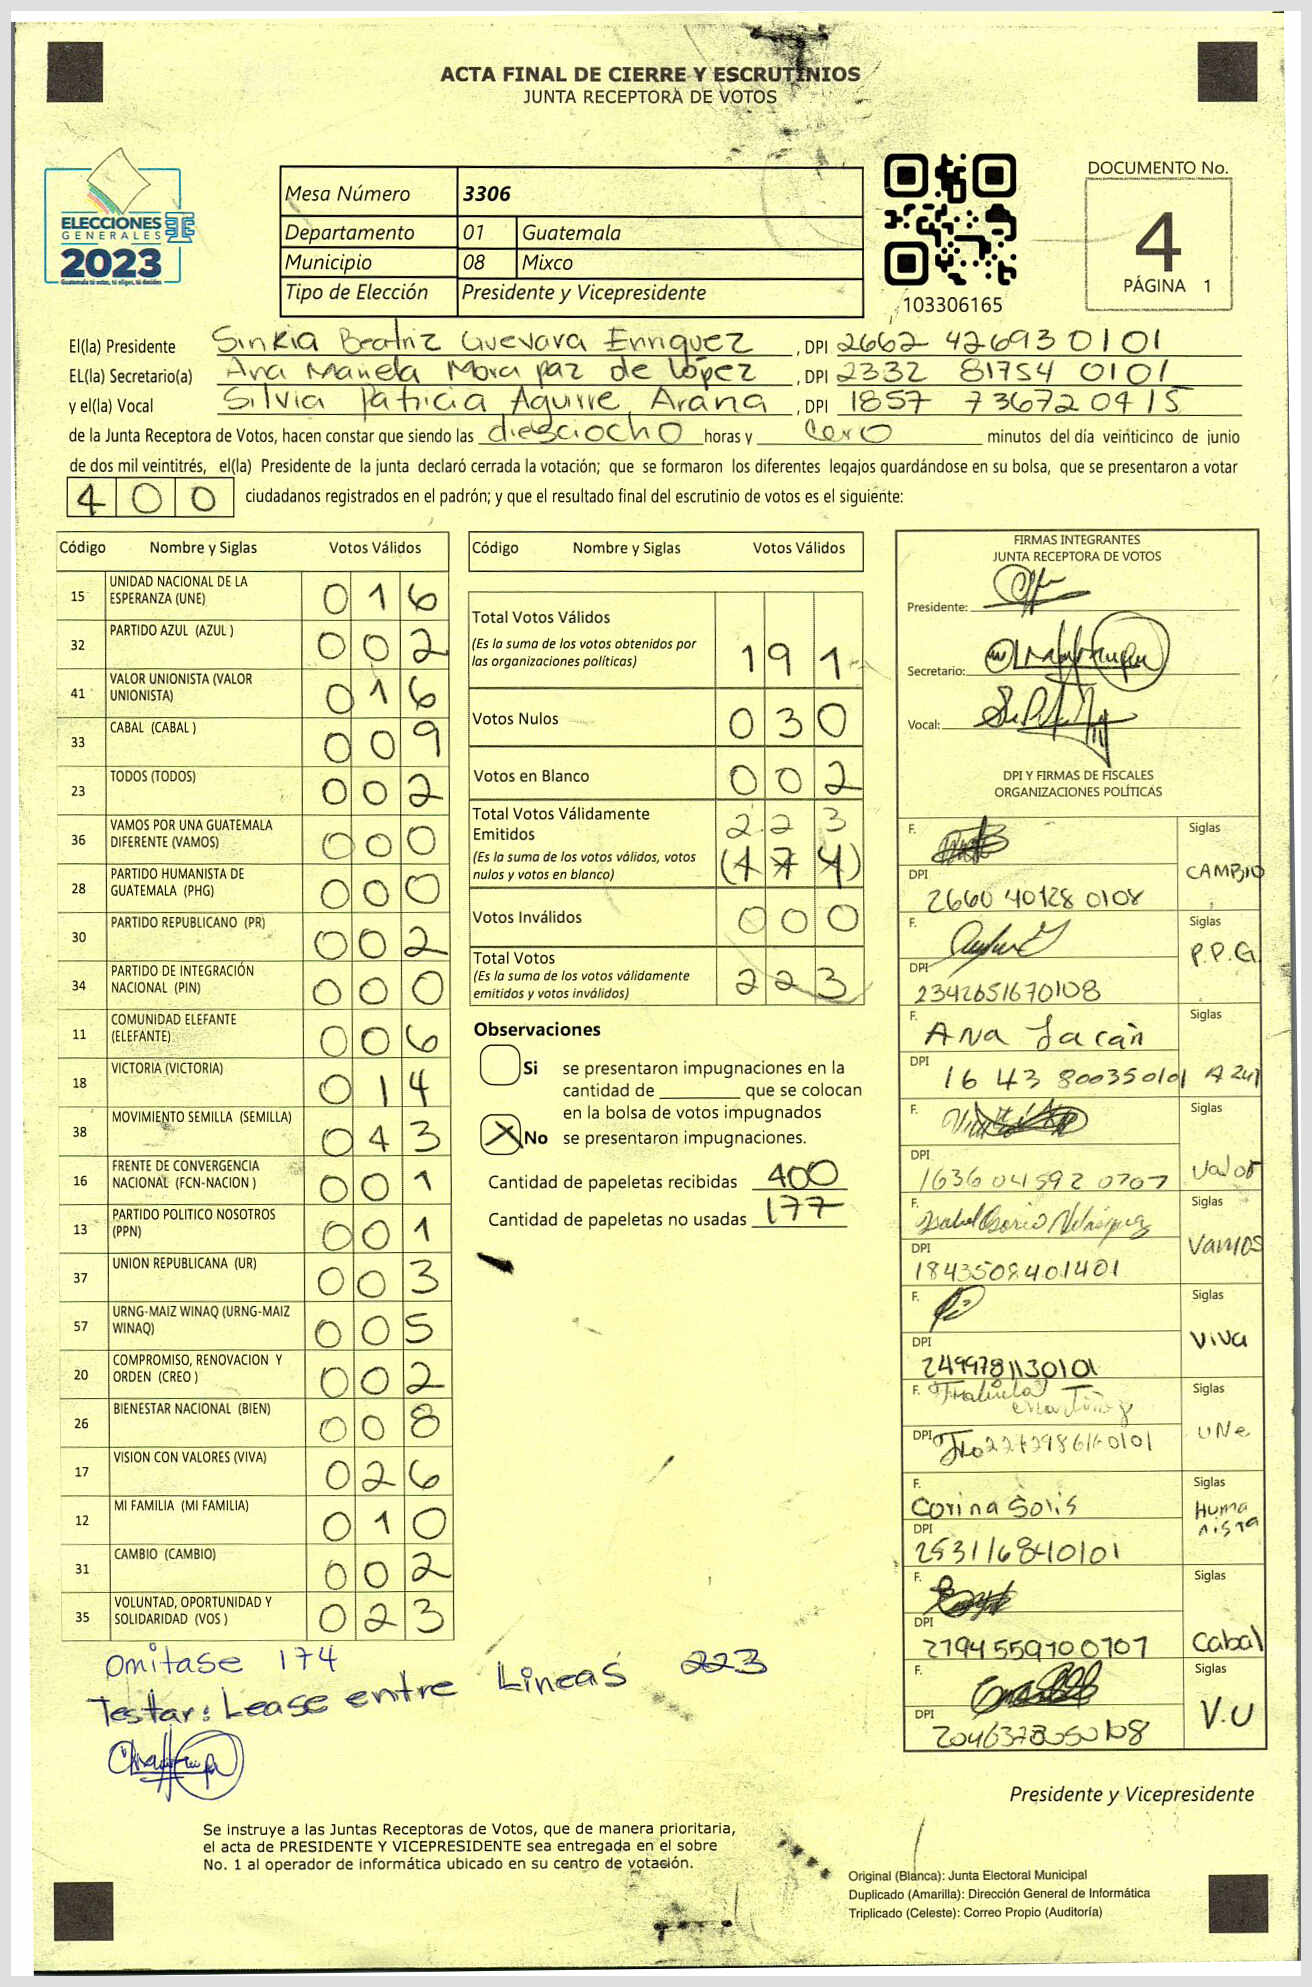 ACTA FINAL DE CIERRE Y ESCRUTINIOS
JUNTA RECEPTORA DE VOTOS
ELECCIONES
GENERALES
2023
Guatemala tú votas, tú eliges, tú decides
Mesa Número 3306
Departamento 01 Guatemala
Municipio 08 Mixco
Tipo de Elección Presidente y Vicepresidente
103306165
DOCUMENTO No.
4
PÁGINA 1
El(la) Presidente Sinkia Beatriz Guevara Enriquez, DPI 2662 42693 0101
EL(la) Secretario(a) Ana Mariela Mora paz de lópez, DPI 2332 81754 0101
y el(la) Vocal Silvia Patricia Aguirre Arana, DPI 1857 73672 0415
de la Junta Receptora de Votos, hacen constar que siendo las diesciocho horas y cero minutos del día veinticinco de junio
de dos mil veintitrés, el(la) Presidente de la junta declaró cerrada la votación; que se formaron los diferentes legajos guardándose en su bolsa, que se presentaron a votar
400 ciudadanos registrados en el padrón; y que el resultado final del escrutinio de votos es el siguiente:
Código Nombre y Siglas Votos Válidos
15 UNIDAD NACIONAL DE LA ESPERANZA (UNE) 016
32 PARTIDO AZUL (AZUL ) 002
41 VALOR UNIONISTA (VALOR UNIONISTA) 016
33 CABAL (CABAL ) 009
23 TODOS (TODOS) 002
36 VAMOS POR UNA GUATEMALA DIFERENTE (VAMOS) 000
28 PARTIDO HUMANISTA DE GUATEMALA (PHG) 000
30 PARTIDO REPUBLICANO (PR) 002
34 PARTIDO DE INTEGRACIÓN NACIONAL (PIN) 000
11 COMUNIDAD ELEFANTE (ELEFANTE) 006
18 VICTORIA (VICTORIA) 014
38 MOVIMIENTO SEMILLA (SEMILLA) 043
16 FRENTE DE CONVERGENCIA NACIONAL (FCN-NACION ) 001
13 PARTIDO POLITICO NOSOTROS (PPN) 001
37 UNION REPUBLICANA (UR) 003
57 URNG-MAIZ WINAQ (URNG-MAIZ WINAQ) 005
20 COMPROMISO, RENOVACION Y ORDEN (CREO ) 002
26 BIENESTAR NACIONAL (BIEN) 008
17 VISION CON VALORES (VIVA) 026
12 MI FAMILIA (MI FAMILIA) 010
31 CAMBIO (CAMBIO) 002
35 VOLUNTAD, OPORTUNIDAD Y SOLIDARIDAD (VOS ) 023
Omitase 174
Testar: Lease entre Lineas 223
Código Nombre y Siglas Votos Válidos
Total Votos Válidos
(Es la suma de los votos obtenidos por
las organizaciones políticas) 191
Votos Nulos 030
Votos en Blanco 002
Total Votos Válidamente 223
Emitidos
(Es la suma de los votos válidos, votos
nulos y votos en blanco) (174)
Votos Inválidos 000
Total Votos
(Es la suma de los votos válidamente
emitidos y votos inválidos) 223
Observaciones
Si se presentaron impugnaciones en la
cantidad de ________ que se colocan
en la bolsa de votos impugnados
X No se presentaron impugnaciones.
Cantidad de papeletas recibidas 400
Cantidad de papeletas no usadas 177
FIRMAS INTEGRANTES
JUNTA RECEPTORA DE VOTOS
Presidente:
Secretario:
Vocal:
DPI Y FIRMAS DE FISCALES
ORGANIZACIONES POLÍTICAS
F. Siglas
DPI CAMBIO
2660 40128 0108
F. Siglas
DPI P.P.G.
2342651670108
F. Ana Jacán Siglas
DPI 16 43 80035 0101 Azul
F. Siglas
DPI Valor
1636 04592 0707
F. Isabel Osorio Velásquez Siglas
DPI Vamos
1843508401401
F. Siglas
DPI Viva
2499781130101
F. Siglas
DPI UNe
F. Siglas
Corina Solis Humanista
DPI
2531168410101
F. Siglas
DPI Cabal
2794559100707
F. Siglas
DPI V.U
Presidente y Vicepresidente
Se instruye a las Juntas Receptoras de Votos, que de manera prioritaria,
el acta de PRESIDENTE Y VICEPRESIDENTE sea entregada en el sobre
No. 1 al operador de informática ubicado en su centro de votación.
Original (Blanca): Junta Electoral Municipal
Duplicado (Amarilla): Dirección General de Informática
Triplicado (Celeste): Correo Propio (Auditoría)